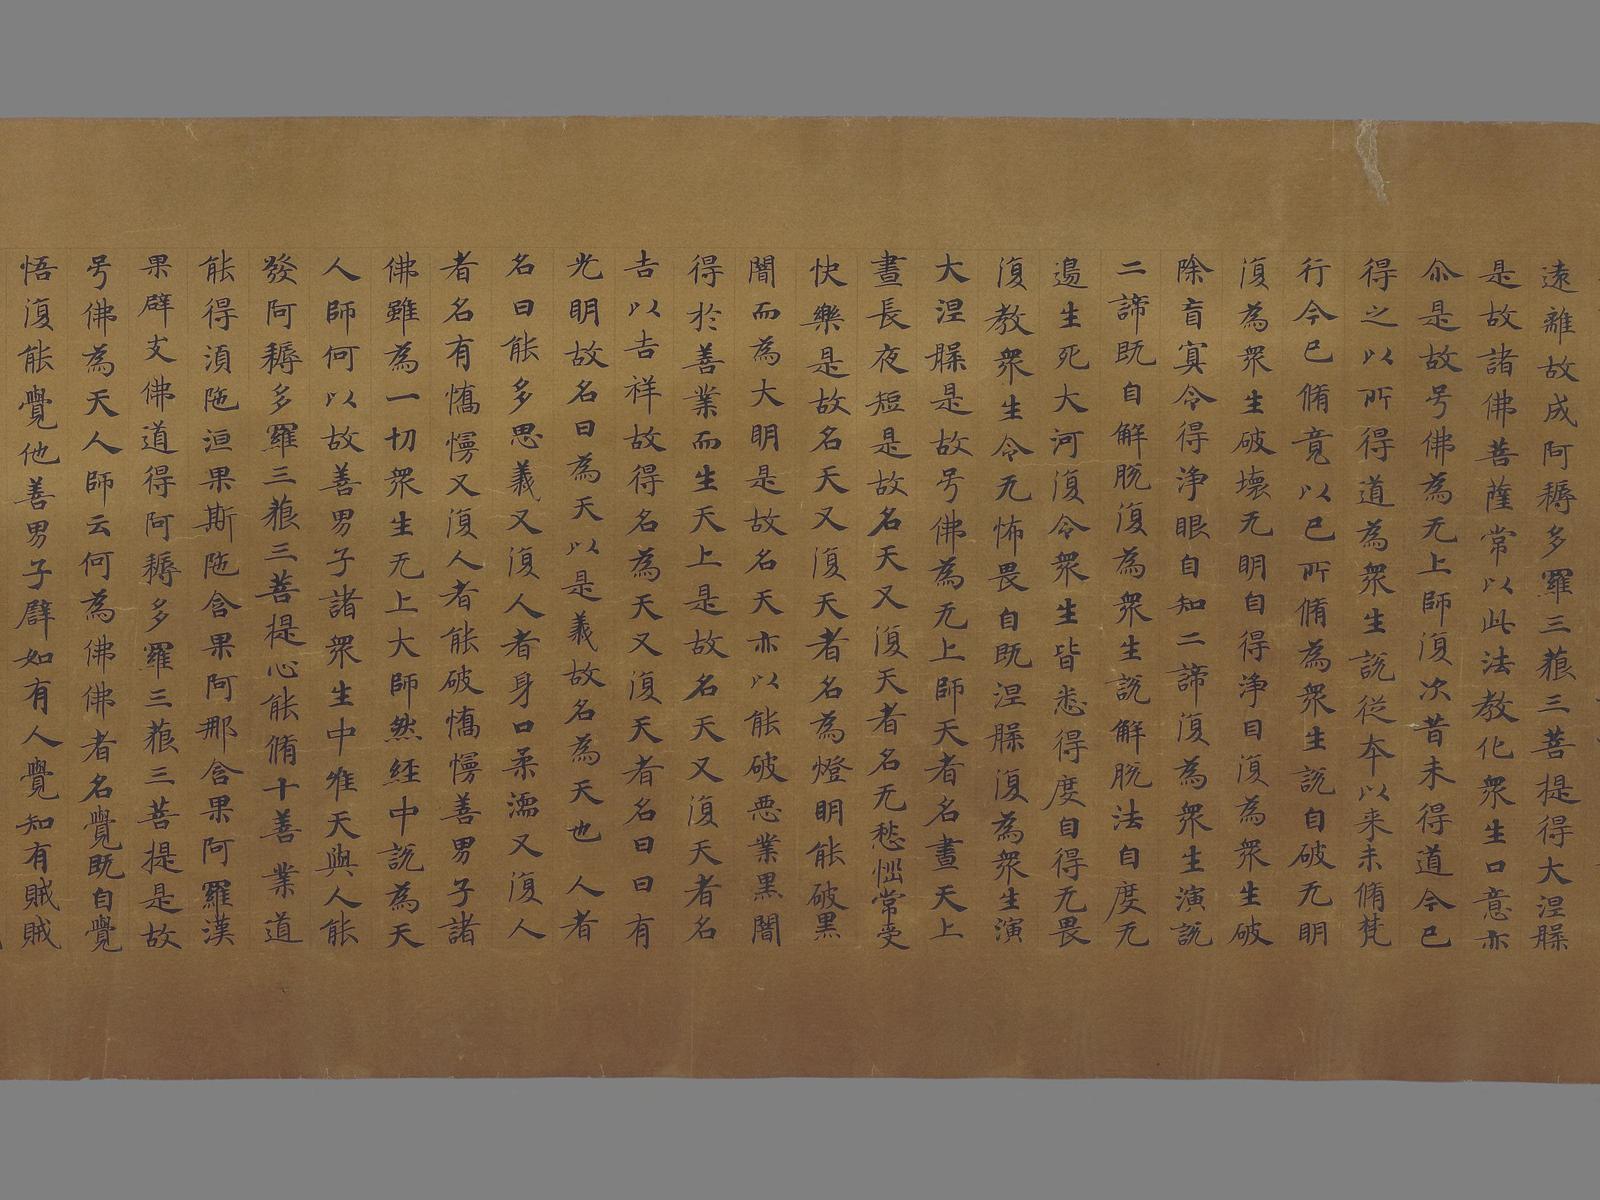 遠離故成阿耨多羅三藐三菩提得大涅槃
是故諸佛菩薩常以此法教化衆生口意亦
尒是故号佛為无上師復次昔未得道今已
得之以所得道為衆生說從本以来未脩梵
行今已脩竟以已所脩為衆生說自破无明
復為衆生破壞无明自得淨目復為衆生破
除盲㝠令得淨眼自知二諦復為衆生演說
二諦既自解脫復為衆生說解脫法自度无
邊生死大河復令衆生皆悉得度自得无畏
復教衆生令无怖畏自既涅槃復為衆生演
大涅槃是故号佛為无上師天者名晝天上
晝長夜短是故名天又復天者名无愁惱常受
快樂是故名天又復天者名為燈明能破黒
闇而為大明是故名天亦以能破惡業黒闇
得於善業而生天上是故名天又復天者名
吉以吉祥故得名為天又復天者名曰日有
光明故名曰為天以是義故名為天也人者
名曰能多思義又復人者身口柔濡又復人
者名有憍慢又復人者能破憍慢善男子諸
佛雖為一切衆生无上大師然経中說為天
人師何以故善男子諸衆生中唯天與人能
發阿耨多羅三藐三菩提心能脩十善業道
能得湏陁洹果斯陁含果阿那含果阿羅漢
果辟支佛道得阿耨多羅三藐三菩提是故
号佛為天人師云何為佛佛者名覺既自覺
悟復能覺他善男子譬如有人覺知有賊賊